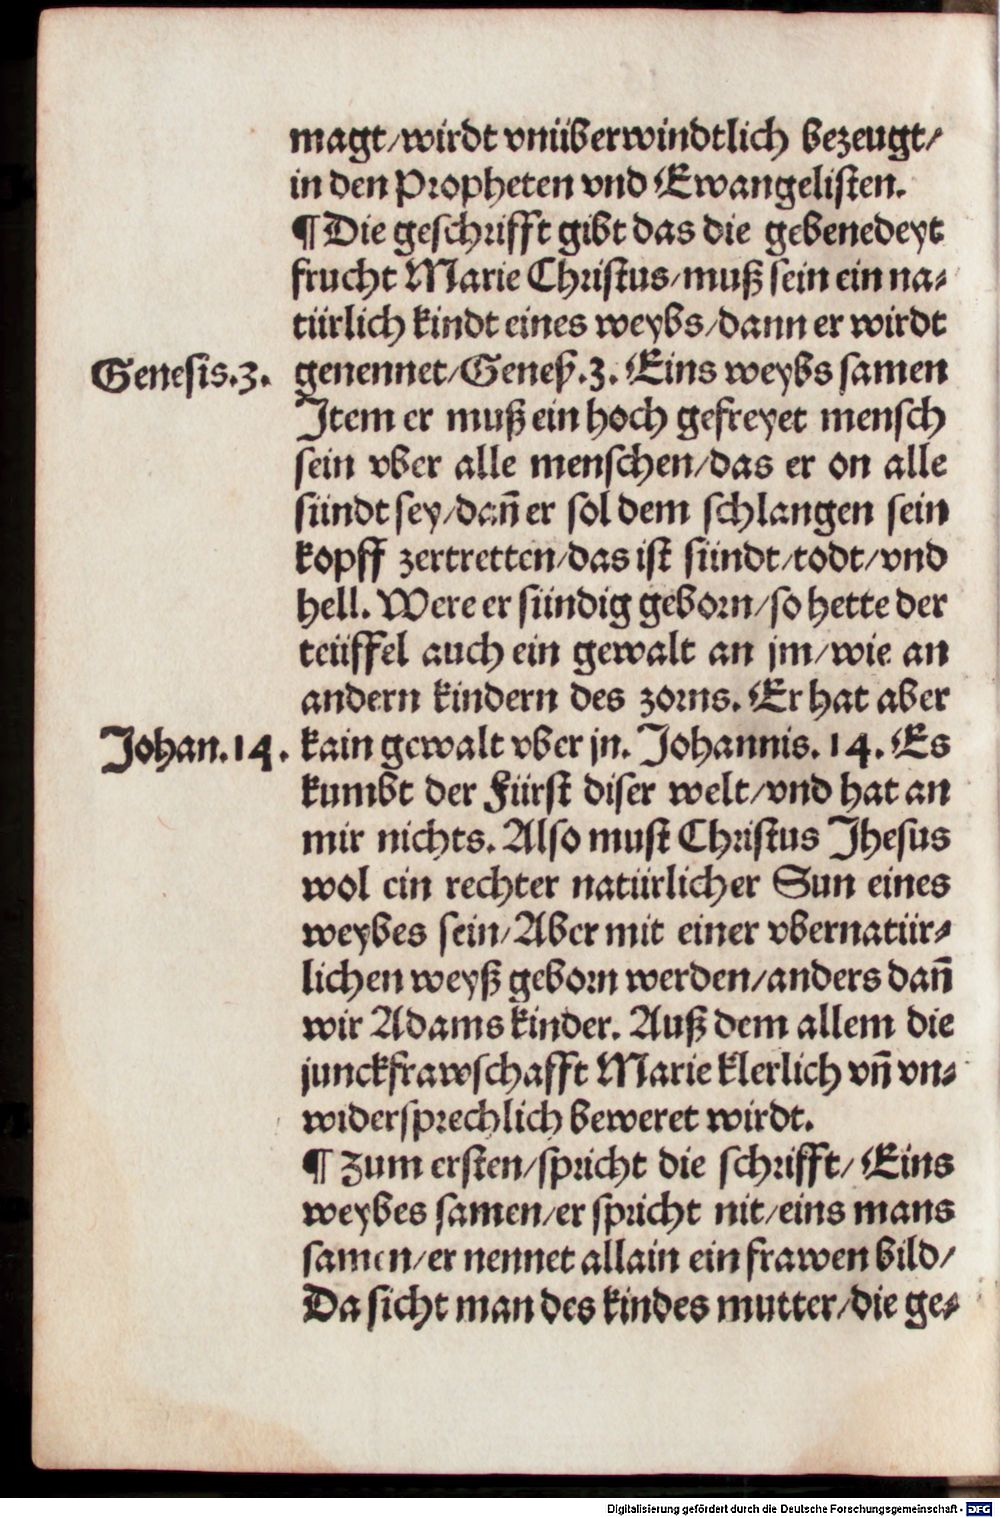 magt/wirdt vnüberwindtlich bezeugt/
in den Propheten vnd Ewangelisten.
¶ Die geschrifft gibt das die gebenedeyt
frucht Marie Christus/muß sein ein na⸗
türlich kindt eines weybs/dann er wirdt
Genesis.3. genennet/Geneß.3. Eins weybs samen
Item er muß ein hoch gefreyet mensch
sein vber alle menschen/das er on alle
sündt sey/dañ er sol dem schlangen sein
kopff zertretten/das ist sündt/todt/vnd
hell. Were er sündig geborn/so hette der
teüffel auch ein gewalt an jm/wie an
andern kindern des zorns. Er hat aber
Johan.14. kain gewalt vber jn. Johannis. 14. Es
kumbt der Fürst diser welt/vnd hat an
mir nichts. Also must Christus Jhesus
wol ein rechter natürlicher Sun eines
weybes sein/Aber mit einer vbernatür⸗
lichen weyß geborn werden/anders dañ
wir Adams kinder. Auß dem allem die
junckfrawschafft Marie klerlich vñ vn⸗
widersprechlich beweret wirdt.
¶ Zum ersten/spricht die schrifft/ Eins
weybes samen/er spricht nit/eins mans
samen/er nennet allain ein frawen bild/
Da sicht man des kindes mutter/die ge⸗
Digitalisierung gefördert durch die Deutsche Forschungsgemeinschaft - DFG